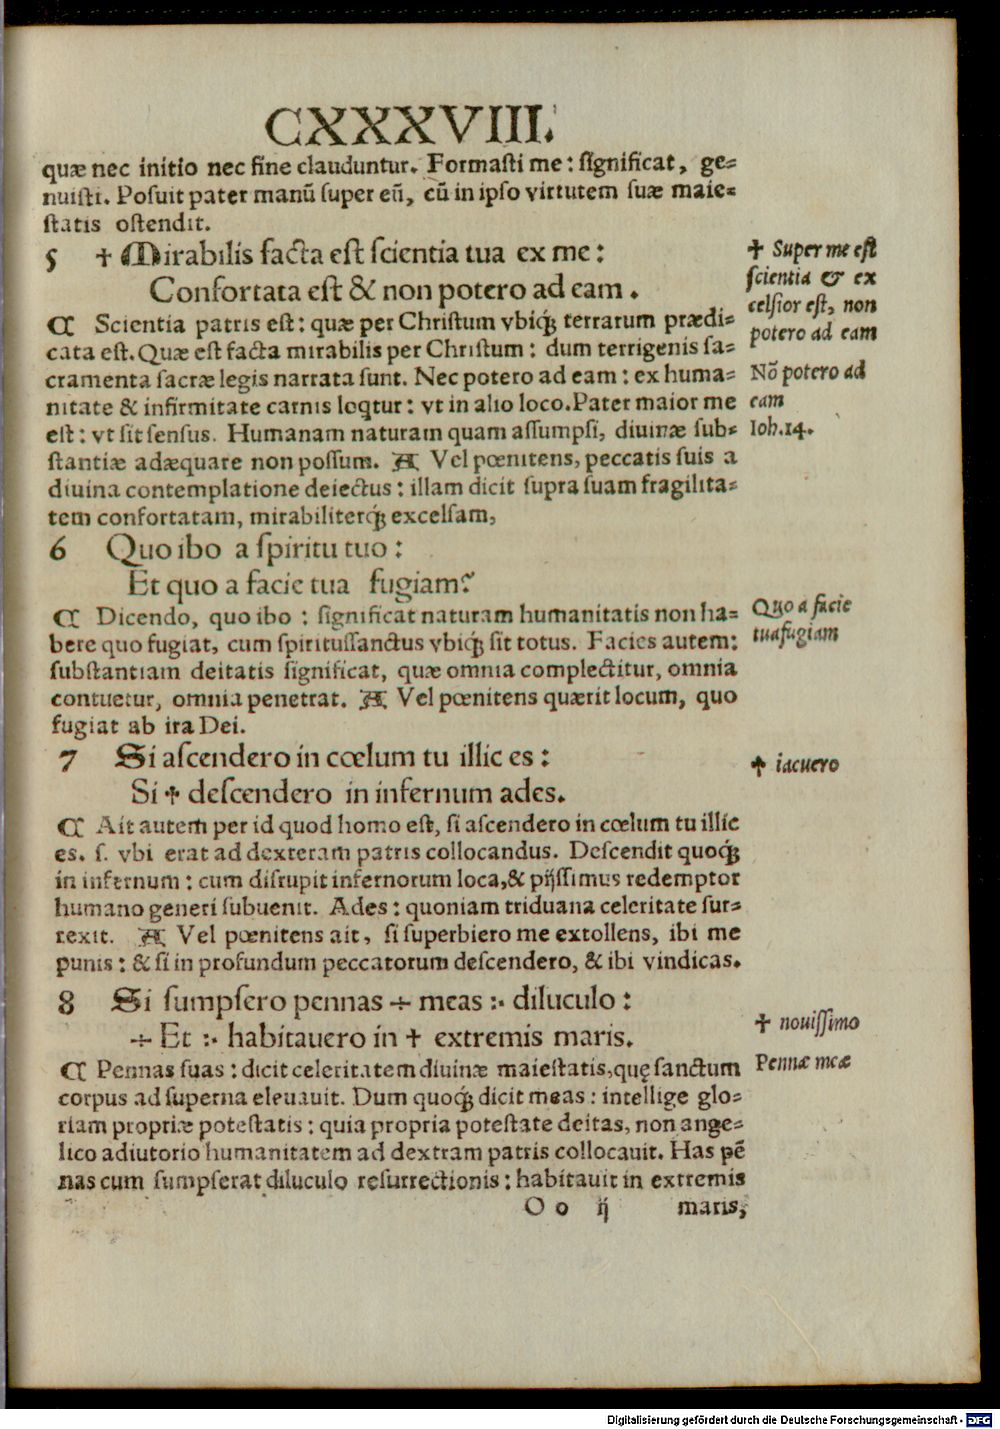 CXXXVIII.
quæ nec initio nec fine clauduntur. Formasti me: significat, ge=
nuisti. Posuit pater manū super eū, cū in ipso virtutem suæ maie=
statis ostendit.
5 ✝ Mirabilis facta est scientia tua ex me:
Confortata est & non potero ad eam.
¶ Scientia patris est: quæ per Christum vbiq̃ terrarum prædi=
cata est. Quæ est facta mirabilis per Christum: dum terrigenis sa=
cramenta sacræ legis narrata sunt. Nec potero ad eam: ex huma=
nitate & infirmitate carnis loqtur: vt in alio loco. Pater maior me
est: vt sit sensus. Humanam naturam quam assumpsi, diuinæ sub=
stantiæ adæquare non possum. A Vel pœnitens, peccatis suis a
diuina contemplatione deiectus: illam dicit supra suam fragilita=
tem confortatam, mirabiliterq̃ excelsam,
6 Quo ibo a spiritu tuo:
Et quo a facie tua fugiam?
¶ Dicendo, quo ibo: significat naturam humanitatis non ha=
bere quo fugiat, cum spiritussanctus vbiq̃ sit totus. Facies autem:
substantiam deitatis significat, quæ omnia complectitur, omnia
contuetur, omnia penetrat. A Vel pœnitens quærit locum, quo
fugiat ab ira Dei.
7 Si ascendero in cœlum tu illic es:
Si ✝ descendero in infernum ades.
¶ Ait autem per id quod homo est, si ascendero in cœlum tu illic
es. s. vbi erat ad dexteram patris collocandus. Descendit quoq̃
in infernum: cum disrupit infernorum loca, & pijssimus redemptor
humano generi subuenit. Ades: quoniam triduana celeritate sur=
rexit. A Vel pœnitens ait, si superbiero me extollens, ibi me
punis: & si in profundum peccatorum descendero, & ibi vindicas.
8 Si sumpsero pennas ÷ meas :· diluculo:
÷ Et :· habitauero in ✝ extremis maris.
¶ Pennas suas: dicit celeritatem diuinæ maiestatis, quę sanctum
corpus ad superna eleuauit. Dum quoq̃ dicit meas: intellige glo=
riam propriæ potestatis: quia propria potestate deitas, non ange=
lico adiutorio humanitatem ad dextram patris collocauit. Has pē
nas cum sumpserat diluculo resurrectionis: habitauit in extremis
O o ij maris,
✝ Super me est
scientia & ex
celsior est, non
potero ad eam
Nō potero ad
eam
Ioh.14.
Quo a facie
tua fugiam
✝ iacuero
✝ nouissimo
Pennæ meæ
Digitalisierung gefördert durch die Deutsche Forschungsgemeinschaft - DFG